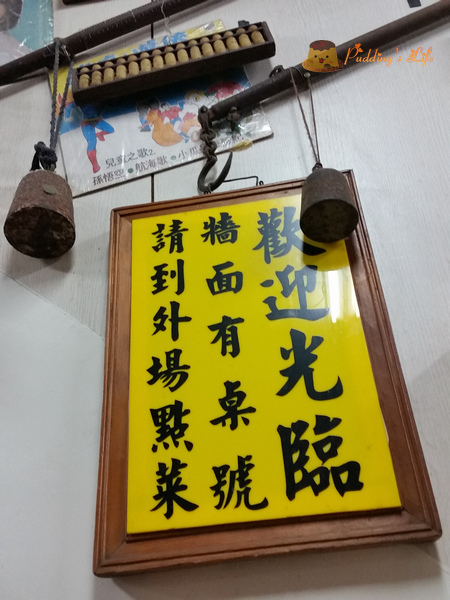 歡迎光臨
牆面有桌號
請到外場點菜
兒童之歌2
孫悟空●航海歌●小
Pudding's Life